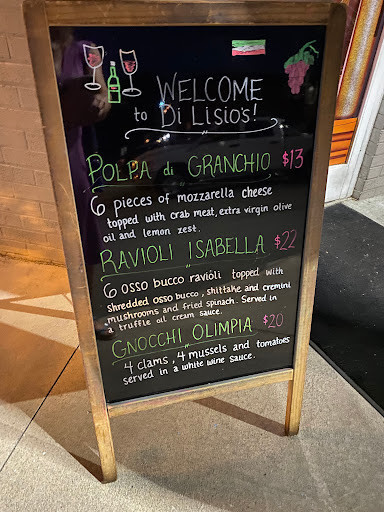 WELCOME
to Di Lisio's!
POLPA di GRANCHIO $13
6 pieces of mozzarella cheese
topped with crab meat, extra virgin olive
oil and lemon zest.
RAVIOLI ISABELLA $22
6 osso bucco ravioli topped with
shredded osso bucco, shiitake and cremini
mushrooms and fried spinach. Served in
a truffle oil cream sauce.
GNOCCHI OLIMPIA $20
4 clams, 4 mussels and tomatoes
served in a white wine sauce.